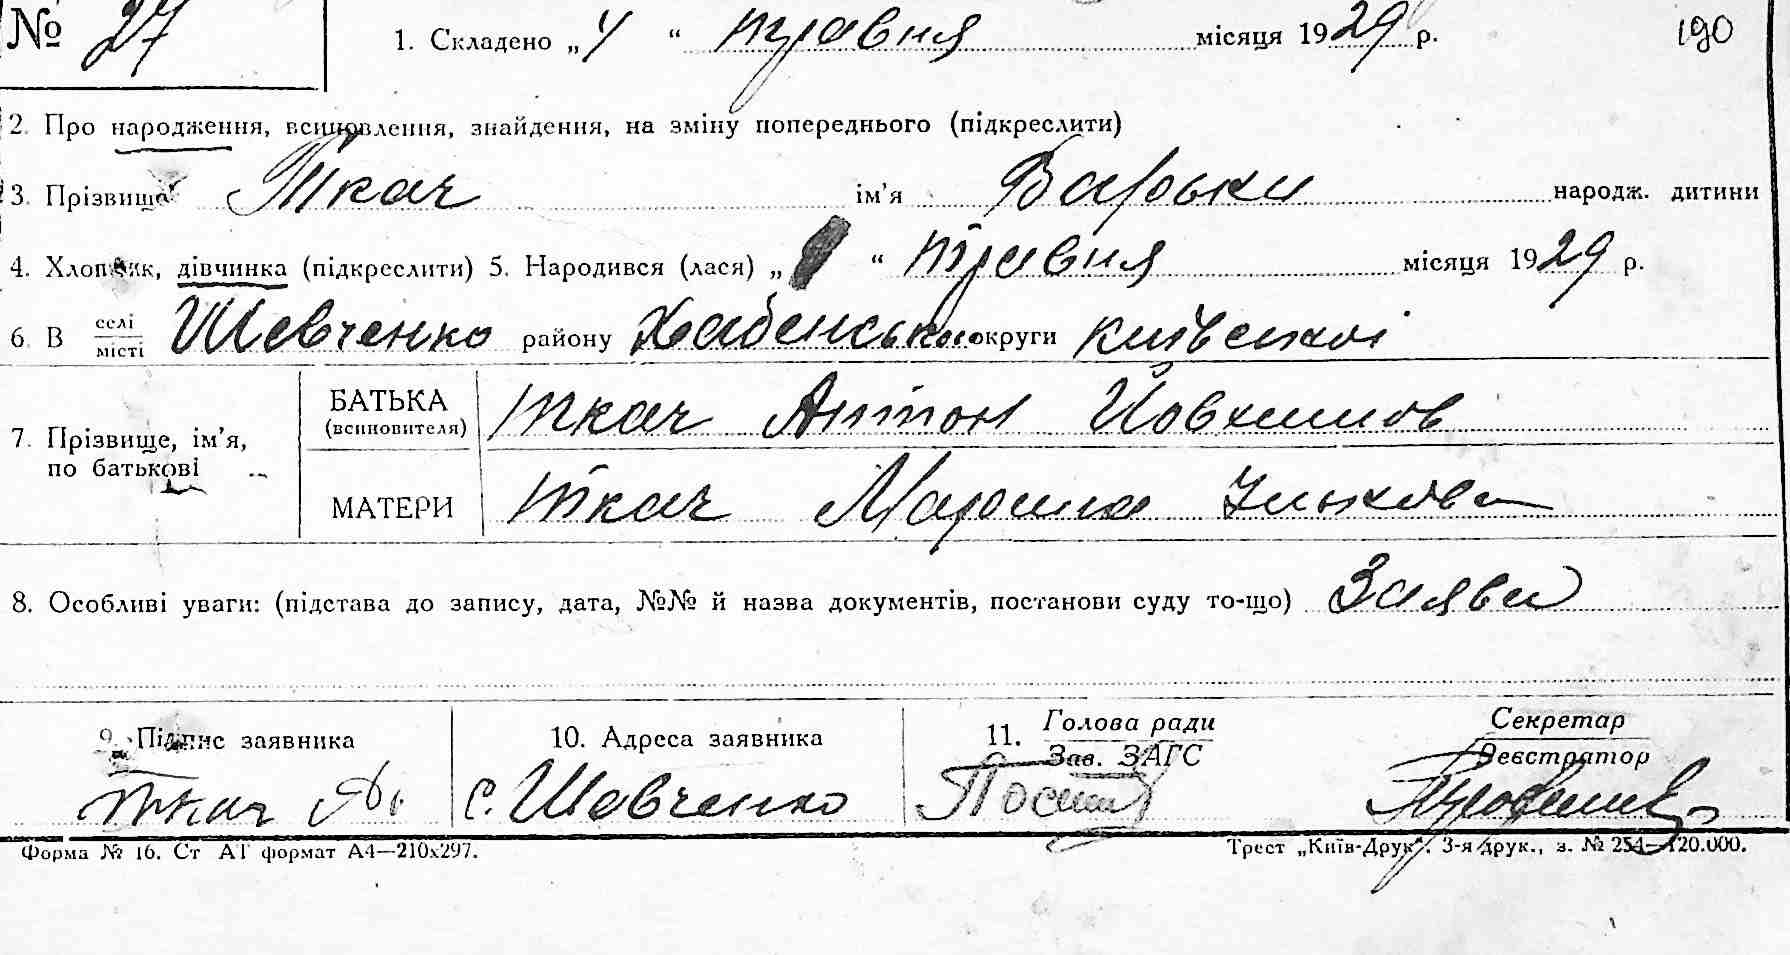 № 27 1. Складено „4“ травня місяця 1929 р. 190
2. Про народження, всиновлення, знайдення, на зміну попереднього (підкреслити)
3. Прізвище Ткач ім’я Варьки народж. дитини
4. Хлопчик, дівчинка (підкреслити) 5. Народився (лася) „ “ травня місяця 1929 р.
6. В селі місті Шевченко району Хабенського округи Київської
7. Прізвище, ім’я, по батькові
БАТЬКА (всиновителя) Ткач Антон Йовхимов
МАТЕРИ Ткач Марина
8. Особливі уваги: (підстава до запису, дата, №№ й назва документів, постанови суду то-що) Заява
9. Підпис заявника 10. Адреса заявника 11. Голова ради Зав. ЗАГС Секретар Реєстратор
Ткач с. Шевченко
Форма № 16. Ст АТ формат А4—210х297. Трест „Київ-Друк“. 3-я друк., з. № 254—120.000.